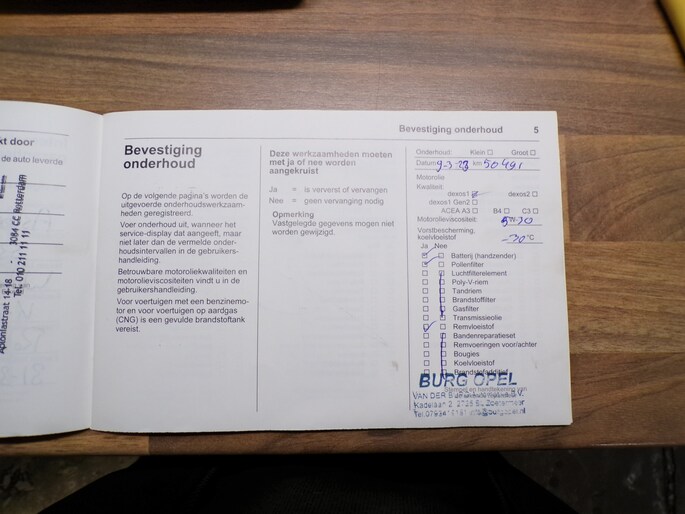 kt door
de auto leverde
3084 CC Rotterdam
Tel. 010 211 11 11
14-18
Bevestiging onderhoud 5
Bevestiging
onderhoud
Op de volgende pagina's worden de
uitgevoerde onderhoudswerkzaam-
heden geregistreerd.
Voer onderhoud uit, wanneer het
service-display dat aangeeft, maar
niet later dan de vermelde onder-
houdsintervallen in de gebruikers-
handleiding.
Betrouwbare motoroliekwaliteiten en
motorolieviscositeiten vindt u in de
gebruikershandleiding.
Voor voertuigen met een benzinemo-
tor en voor voertuigen op aardgas
(CNG) is een gevulde brandstoftank
vereist.
Deze werkzaamheden moeten
met ja of nee worden
aangekruist
Ja = is ververst of vervangen
Nee = geen vervanging nodig
Opmerking
Vastgelegde gegevens mogen niet
worden gewijzigd.
Onderhoud: Klein Groot
Datum 9-3-23 km 50491
Motorolie
Kwaliteit:
dexos1 dexos2
dexos1 Gen2
ACEA A3 B4 C3
Motorolieviscositeit: 5W-30
Vorstbescherming,
koelvloeistof -30 °C
Ja Nee
Batterij (handzender)
Pollenfilter
Luchtfilterelement
Poly-V-riem
Tandriem
Brandstoffilter
Gasfilter
Transmissieolie
Remvloeistof
Bandenreparatieset
Remvoeringen voor/achter
Bougies
Koelvloeistof
Brandstofadditief
BURG OPEL
VAN DER
Kadelaan 2, 2725 BL Zoetermeer